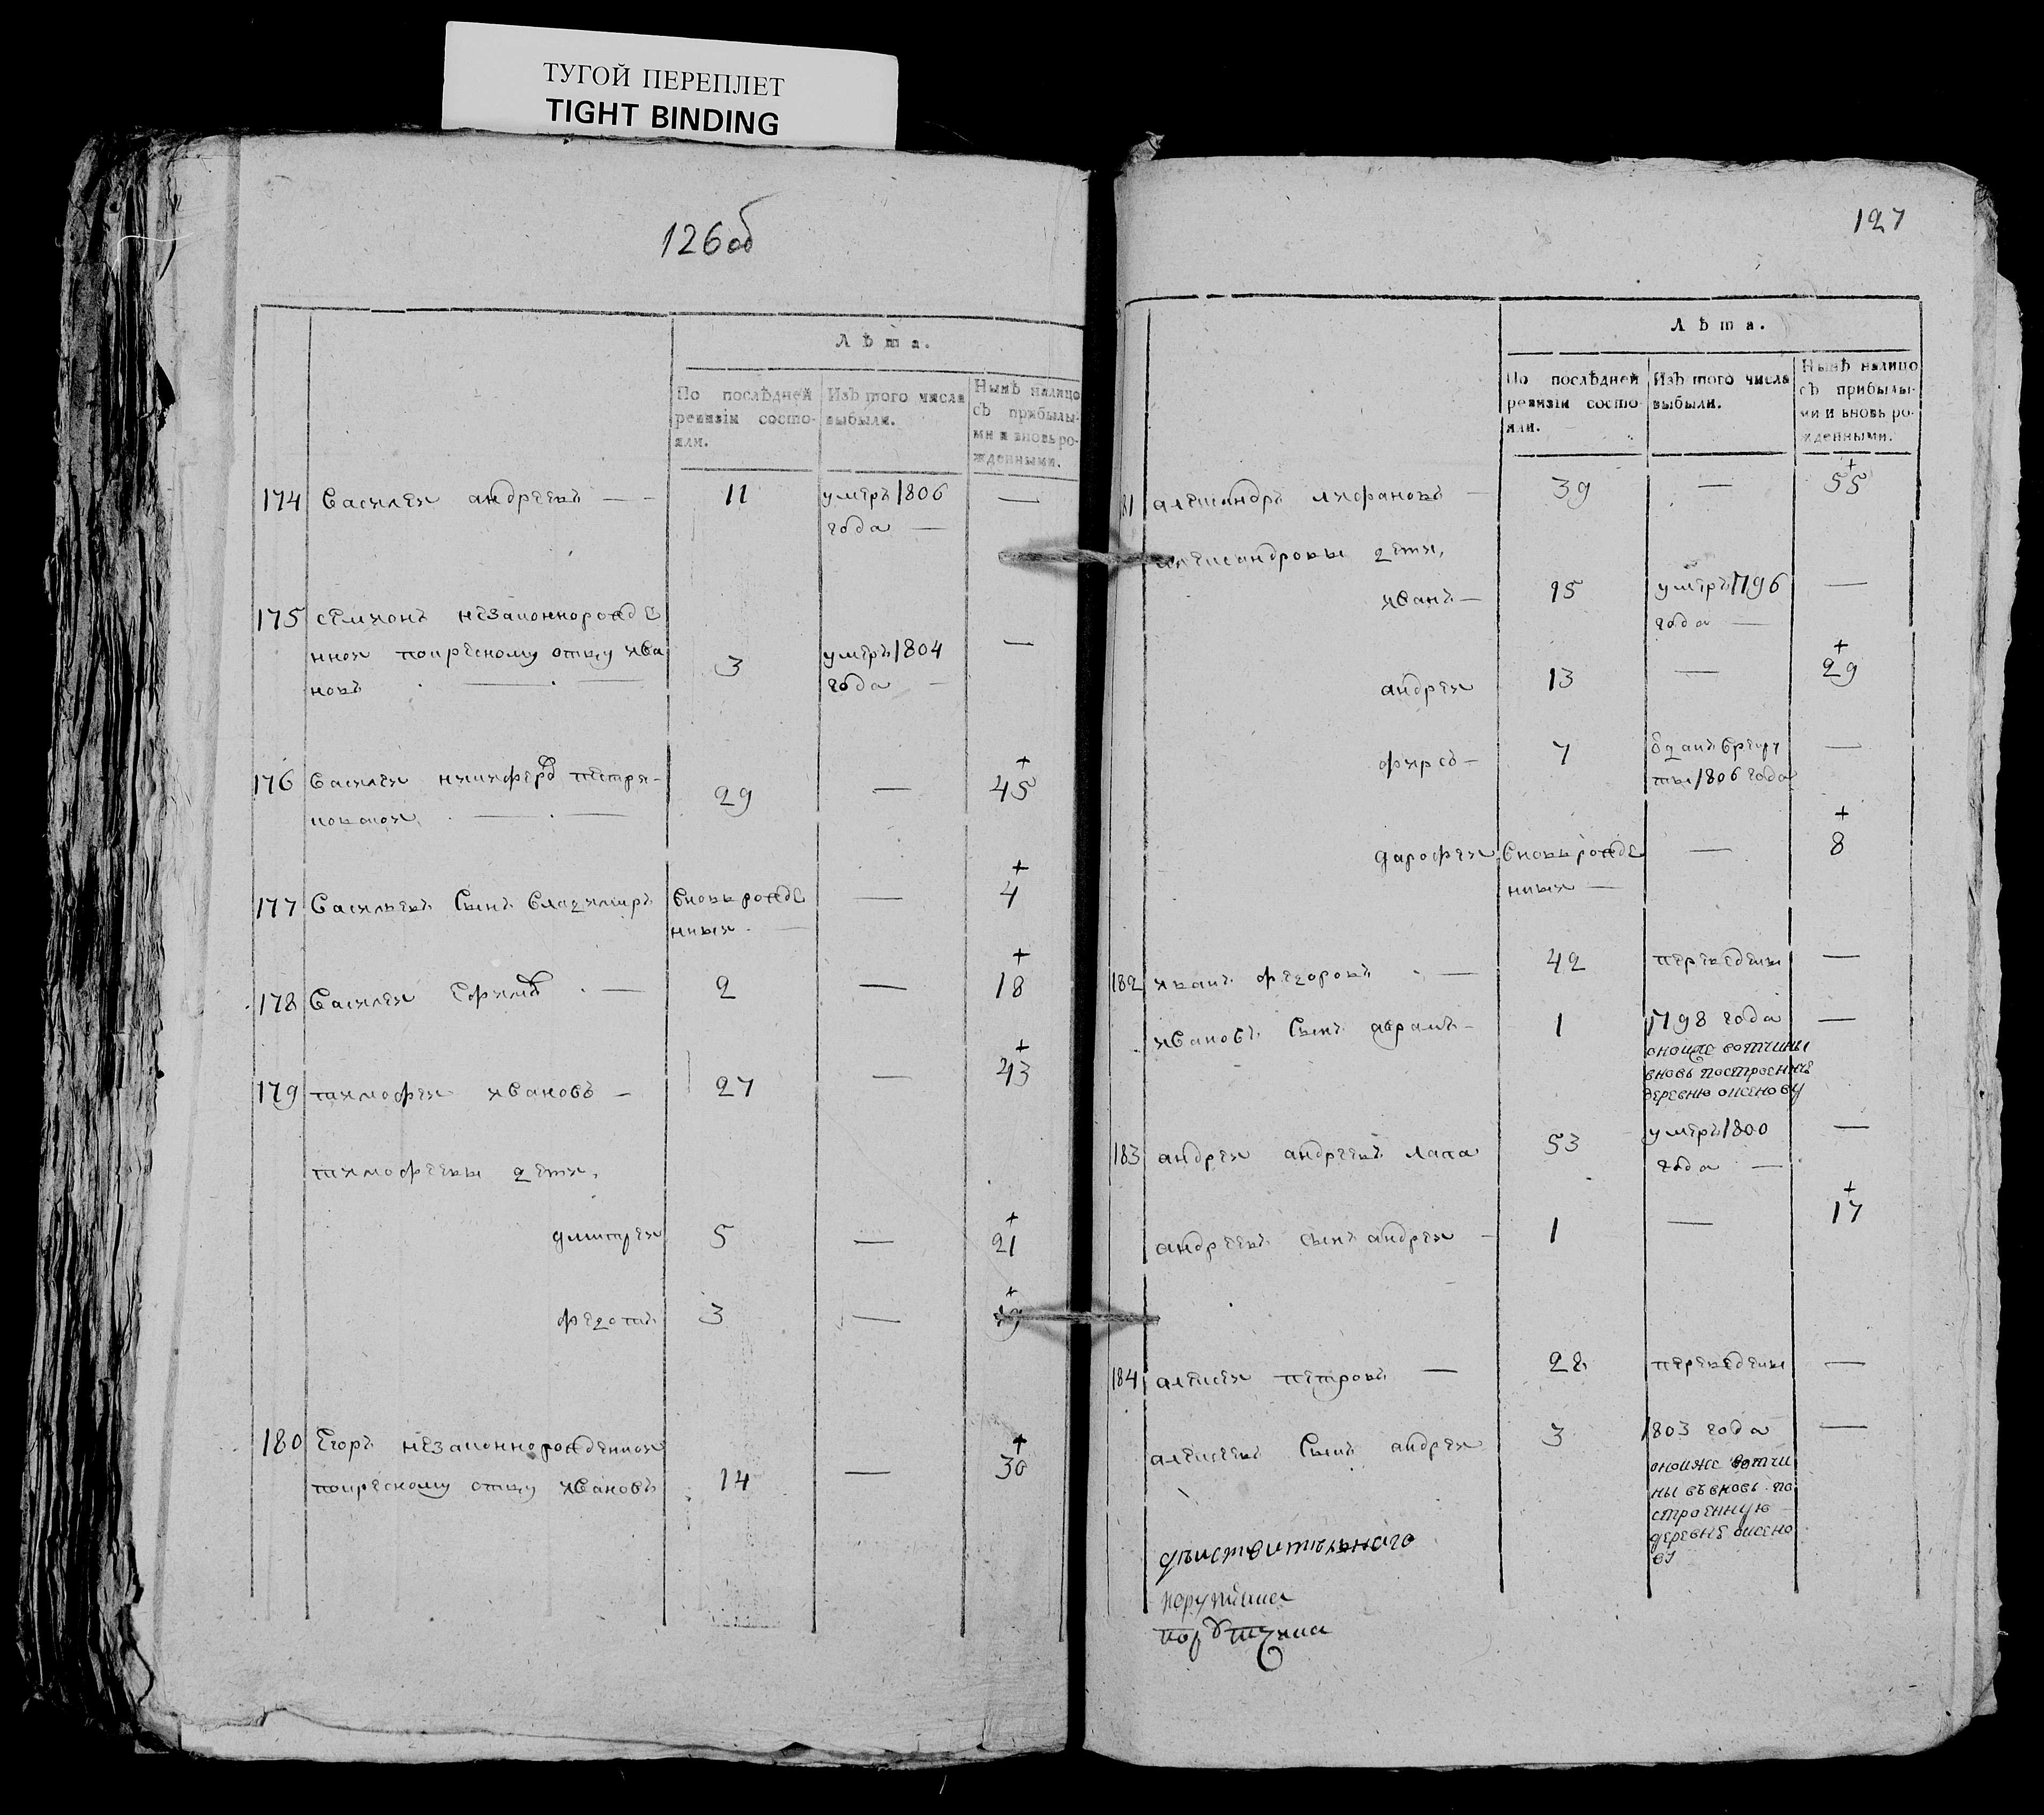 ТУГОЙ ПЕРЕПЛЕТ
TIGHT BINDING
126об
Лѣта.
По послѣдней ревизіи состояли.
Изъ того числа выбыли.
Нынѣ налицо съ прибылыми и вновь рожденными.
174 Василей андреевъ — 11 умеръ 1806 —
года —
175 семионъ незаконнорожде
нной покресному отцу ива 3 умеръ 1804 —
новъ — года —
176 Василей никифоровъ петри- 29 — + 45
177 Васильевъ сынъ владимиръ вновьрожде — + 4
нный —
178 Василей Ефимов — 2 — + 18
179 тимофей ивановъ — 27 — + 43
тимофеевы дети,
дмитрей 5 — + 21
федотъ 3 — + 19
180 Егоръ незаконнорожденной
покресному отцу ивановъ 14 — + 30
127
Лѣта.
По послѣдней ревизіи состояли.
Изъ того числа выбыли.
Нынѣ налицо съ прибылыми и вновь рожденными.
181 александръ — 39 — + 55
александровы дети,
иванъ — 15 умеръ 1796 —
года —
андрей 13 — + 29
фирсъ — 7 отданъ врекру —
ты 1806 года
дарофей вновьрожде — + 8
нный —
182 иванъ федоровъ — 42 переведены —
ивановъ сынъ абрамъ — 1 1798 года —
оной же вотчины
вновь построенную
деревню аксенову
183 андрей андреевъ лапа 53 умеръ 1800 —
года —
андреевъ сынъ андрей — 1 — + 17
184 алексей петровъ — 28 переведены —
алексеевъ сынъ андрей 3 1803 года —
оной же вотчи
ны въ вновь по
строенную
деревне аксено
ву
действительнаго